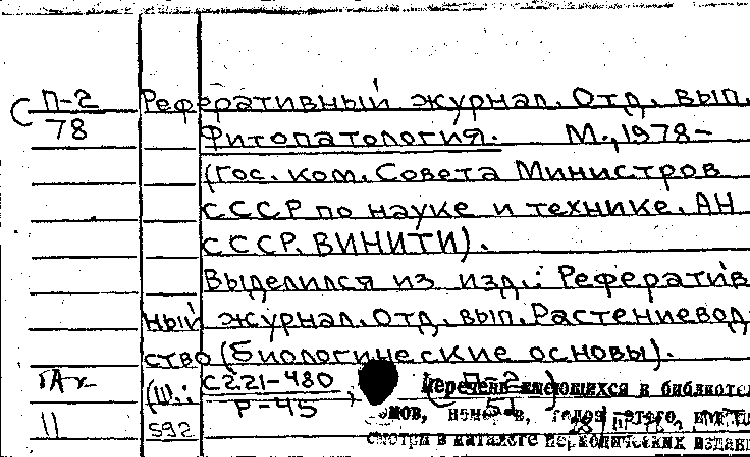 П-2 Реферативный журнал. Отд. вып.
78 Фитопатология. М., 1978-
(Гос. ком. Совета Министров
СССР по науке и технике. АН
СССР. ВИНИТИ).
Выделился из изд.: Рефератив
ный журнал. Отд. вып. Растениевод-
ство (Биологические основы).
(Ш.: С221-480 П-2
Р-45 51
Перечень имеющихся в библиоте
томов, номеров, годов этого
11 592 смотри в каталоге периодических издани